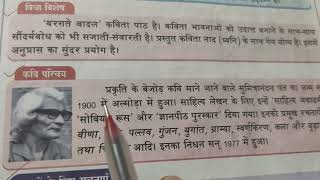 विधा विशेष
'बरसते बादल' कविता पाठ है। कविता भावनाओं को उदात्त बनाने के साथ-साथ
सौंदर्यबोध को भी सजाती-संवारती है। प्रस्तुत कविता नाद (ध्वनि) के साथ गेय योग्य है। इसमें
अनुप्रास का सुंदर प्रयोग है।
कवि परिचय
प्रकृति के बेजोड़ कवि माने जाने वाले सुमित्रानंदन पंत का जन्म स
1900 में अल्मोड़ा में हुआ। साहित्य लेखन के लिए इन्हें 'साहित्य अकादमी
'सोवियत रूस' और 'ज्ञानपीठ पुरस्कार' दिया गया। इनकी प्रमुख रचनाएँ
वीणा, पल्लव, गुंजन, युगांत, ग्राम्या, स्वर्णकिरण, कला और बूढ़ा
तथा आदि। इनका निधन सन् 1977 में हुआ।